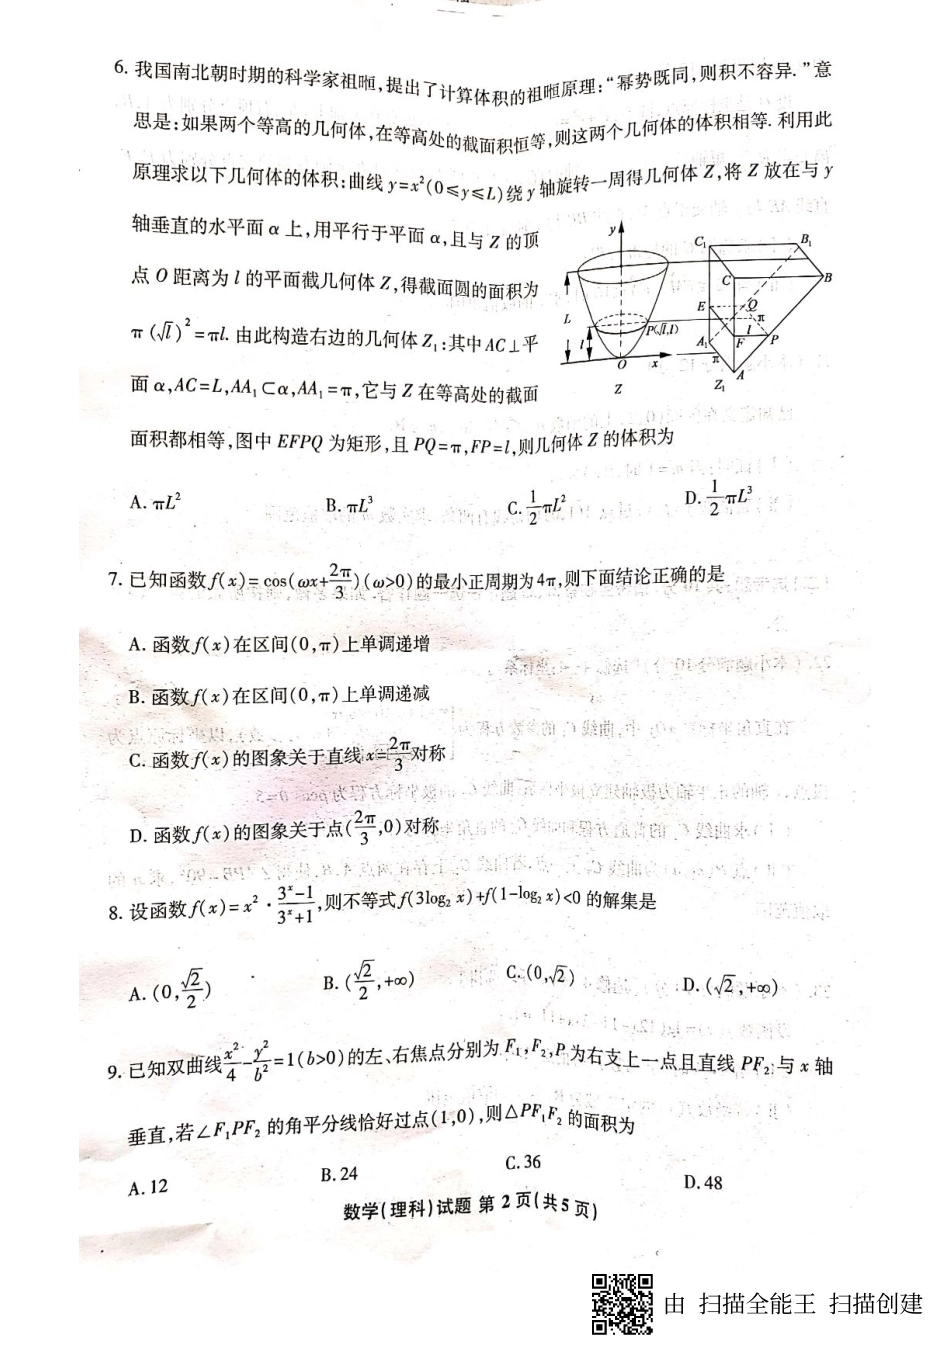 6. 我国南北朝时期的科学家祖暅,提出了计算体积的祖暅原理:“幂势既同,则积不容异.”意
思是:如果两个等高的几何体,在等高处的截面积恒等,则这两个几何体的体积相等. 利用此
原理求以下几何体的体积:曲线 y=x²(0≤y≤L)绕 y 轴旋转一周得几何体 Z,将 Z 放在与 y
轴垂直的水平面 α 上,用平行于平面 α,且与 Z 的顶
点 O 距离为 l 的平面截几何体 Z,得截面圆的面积为
π(√l)²=πl. 由此构造右边的几何体 Z₁:其中 AC⊥平
面 α,AC=L,AA₁⊂α,AA₁=π,它与 Z 在等高处的截面
面积都相等,图中 EFPQ 为矩形,且 PQ=π,FP=l,则几何体 Z 的体积为
y
L
l
P(√l,l)
O
x
Z
C₁
B₁
C
B
E
Q
π
l
A₁
F
P
π
A
Z₁
A. πL²
B. πL³
C. 1/2 πL²
D. 1/2 πL³
7. 已知函数 f(x)=cos(ωx+2π/3)(ω>0)的最小正周期为4π,则下面结论正确的是
A. 函数 f(x)在区间(0,π)上单调递增
B. 函数 f(x)在区间(0,π)上单调递减
C. 函数 f(x)的图象关于直线 x=2π/3 对称
D. 函数 f(x)的图象关于点(2π/3,0)对称
8. 设函数 f(x)=x²·(3ˣ-1)/(3ˣ+1),则不等式 f(3log₂ x)+f(1-log₂ x)<0 的解集是
A. (0,√2/2)
B. (√2/2,+∞)
C. (0,√2)
D. (√2,+∞)
9. 已知双曲线 x²/4-y²/b²=1(b>0)的左、右焦点分别为 F₁,F₂,P 为右支上一点且直线 PF₂ 与 x 轴
垂直,若∠F₁PF₂ 的角平分线恰好过点(1,0),则△PF₁F₂ 的面积为
A. 12
B. 24
C. 36
D. 48
数学(理科)试题 第 2 页(共5 页)
由 扫描全能王 扫描创建